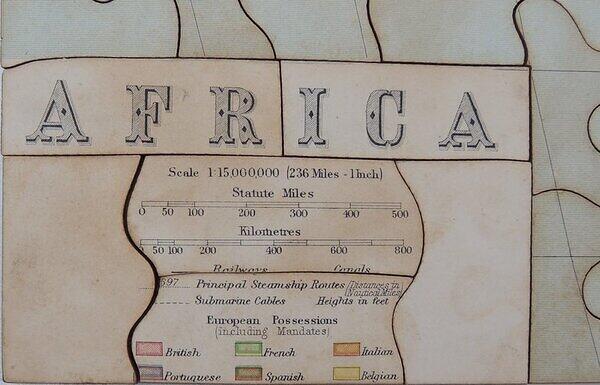 AFRICA
Scale 1:15,000,000 (236 Miles - 1 Inch)
Statute Miles
0 50 100 200 300 400 500
Kilometres
0 50 100 200 400 600 800
Railways Canals
597 Principal Steamship Routes (Distances in Nautical Miles)
Submarine Cables Heights in feet
European Possessions
(including Mandates)
British French Italian
Portuguese Spanish Belgian